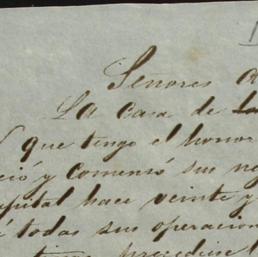 Señores
La Casa de
que tengo el honor
ció y comensó sus ne
apital hace veinte y
á todas sus operacion